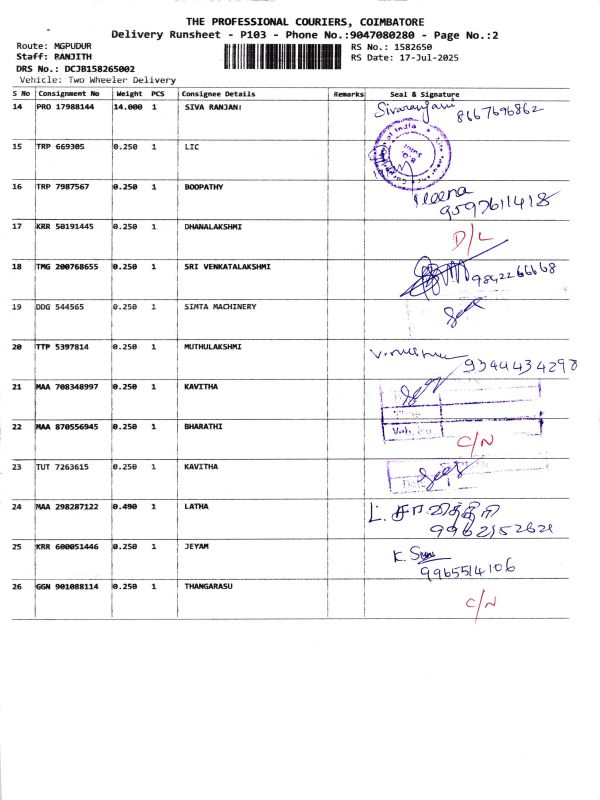 THE PROFESSIONAL COURIERS, COIMBATORE
Delivery Runsheet - P103 - Phone No.:9047080280 - Page No.:2
Route: MGPUDUR RS No.: 1582650
Staff: RANJITH RS Date: 17-Jul-2025
DRS No.: DCJB158265002
Vehicle: Two Wheeler Delivery
S No Consignment No Weight PCS Consignee Details Remarks Seal & Signature
14 PRO 17988144 14.000 1 SIVA RANJANI Sivaranjani 8667696862
15 TRP 669305 0.250 1 LIC
16 TRP 7987567 0.250 1 BOOPATHY 9597611418
17 KRR 50191445 0.250 1 DHANALAKSHMI D/L
18 TMG 200768655 0.250 1 SRI VENKATALAKSHMI 9842266668
19 DDG 544565 0.250 1 SIMTA MACHINERY
20 TTP 5397814 0.250 1 MUTHULAKSHMI 9344434298
21 MAA 708348997 0.250 1 KAVITHA
22 MAA 870556945 0.250 1 BHARATHI C/N
23 TUT 7263615 0.250 1 KAVITHA
24 MAA 298287122 0.490 1 LATHA 9962152621
25 KRR 600051446 0.250 1 JEYAM 9965514106
26 GGN 901088114 0.250 1 THANGARASU C/N